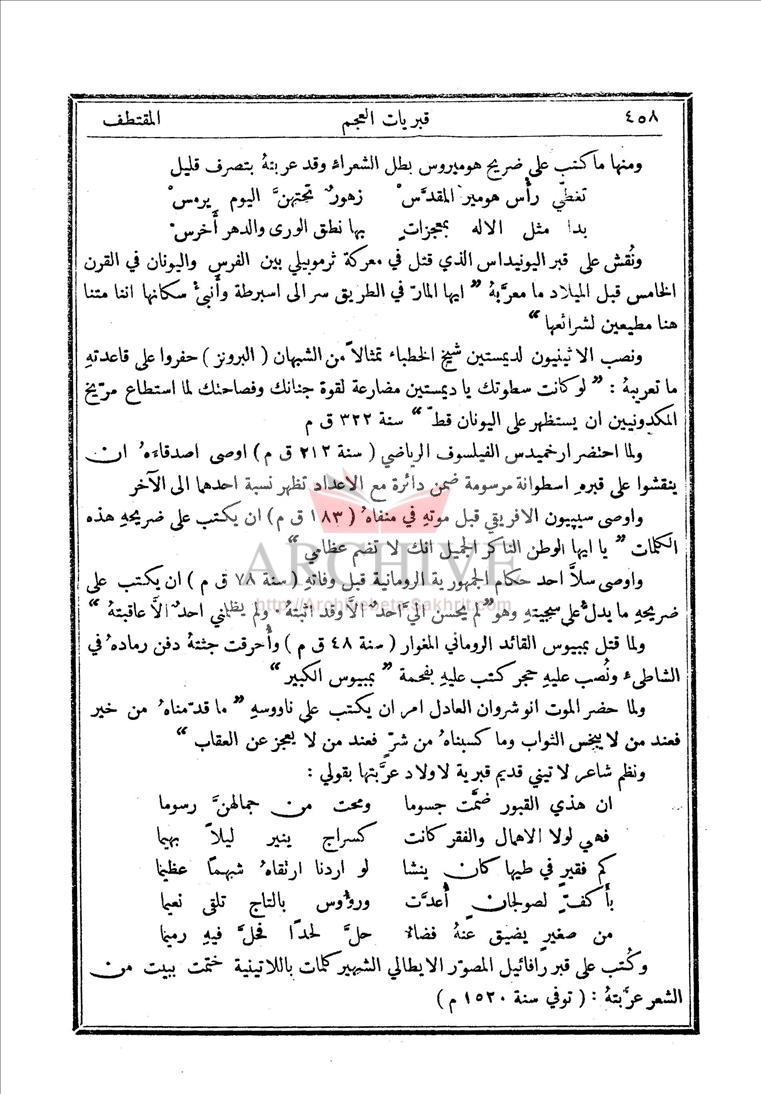 ٤٥٨ قبريات العجم المقتطف
ومنها ما كتب على ضريح هوميروس بطل الشعراء وقد عربتهُ بتصرف قليل
تغطّي رأس هومير المقدَّسْ زهورٌ تحتهنَّ اليوم يرمسْ
بدا مثل الاله بمعجزاتٍ بها نطق الورى والدهر أَخرسْ
ونُقش على قبر اليونيداس الذي قتل في معركة ثرموبيلي بين الفرس واليونان في القرن
الخامس قبل الميلاد ما معرَّبهُ ” ايها المارّ في الطريق سر الى اسبرطة وأَنبئْ سكانها اننا متنا
هنا مطيعين لشرائعها “
ونصب الاثينيون لديمستين شيخ الخطباء تمثالاً من الشبهان ( البرونز ) حفروا على قاعدتهِ
ما تعريبهُ : ” لو كانت سطوتك يا ديمستين مضارعة لقوة جنانك وفصاحتك لما استطاع مرّيخ
المكدونيين ان يستظهر على اليونان قطّ “ سنة ٣٢٢ ق م
ولما احتضر ارخميدس الفيلسوف الرياضي ( سنة ٢١٢ ق م ) اوصى اصدقاءَهُ ان
ينقشوا على قبرهِ اسطوانة مرسومة ضمن دائرة مع الاعداد تظهر نسبة احدهما الى الآخر
واوصى سيبيون الافريقي قبل موتهِ في منفاهُ ( ١٨٣ ق م ) ان يكتب على ضريحهِ هذه
الكلمات ” يا ايها الوطن الناكر الجميل انك لا تضم عظامي “
ARCHIVE
واوصى سلاَّ احد حكام الجمهورية الرومانية قبل وفاتهِ ( سنة ٧٨ ق م ) ان يكتب على
http://Archivebeta.Sakhrit.com
ضريحهِ ما يدلُّ على سجيتهِ وهو ” لم يحسن اليَّ احدٌ الاَّ وقد اثبتهُ . ولم يظلمني احدٌ الاَّ عاقبتهُ “
ولما قتل بمبيوس القائد الروماني المغوار ( سنة ٤٨ ق م ) وأُحرقت جثتهُ دفن رمادهُ في
الشاطىء ونُصب عليهِ حجر كتب عليهِ بفحمة ” بمبيوس الكبير “
ولما حضر الموت انوشروان العادل امر ان يكتب على ناووسهِ ” ما قدّمناهُ من خير
فعند من لا يبخس الثواب وما كسبناهُ من شرٍّ فعند من لا يعجز عن العقاب “
ونظم شاعر لاتيني قديم قبرية لاولاد عرَّبتها بقولي :
ان هذي القبور ضمَّت جسوما ومحت من جمالهنَّ رسوما
فهي لولا الاهمال والفقر كانت كسراج ينير ليلاً بهيما
كم فقيرٍ في طيها كان ينشا لو اردنا ارتقاهُ شهماً عظيما
بأَكفٍّ لصولجانٍ أُعدَّت ورؤوس بالتاج تلقى نعيما
من صغيرٍ يضيق عنهُ فضاءٌ حلَّ لحداً فحلَّ فيهِ رميما
وكُتب على قبر رافائيل المصوّر الايطالي الشهير كلمات باللاتينية ختمت ببيت من
الشعر عرَّبتهُ : ( توفي سنة ١٥٢٠ م )